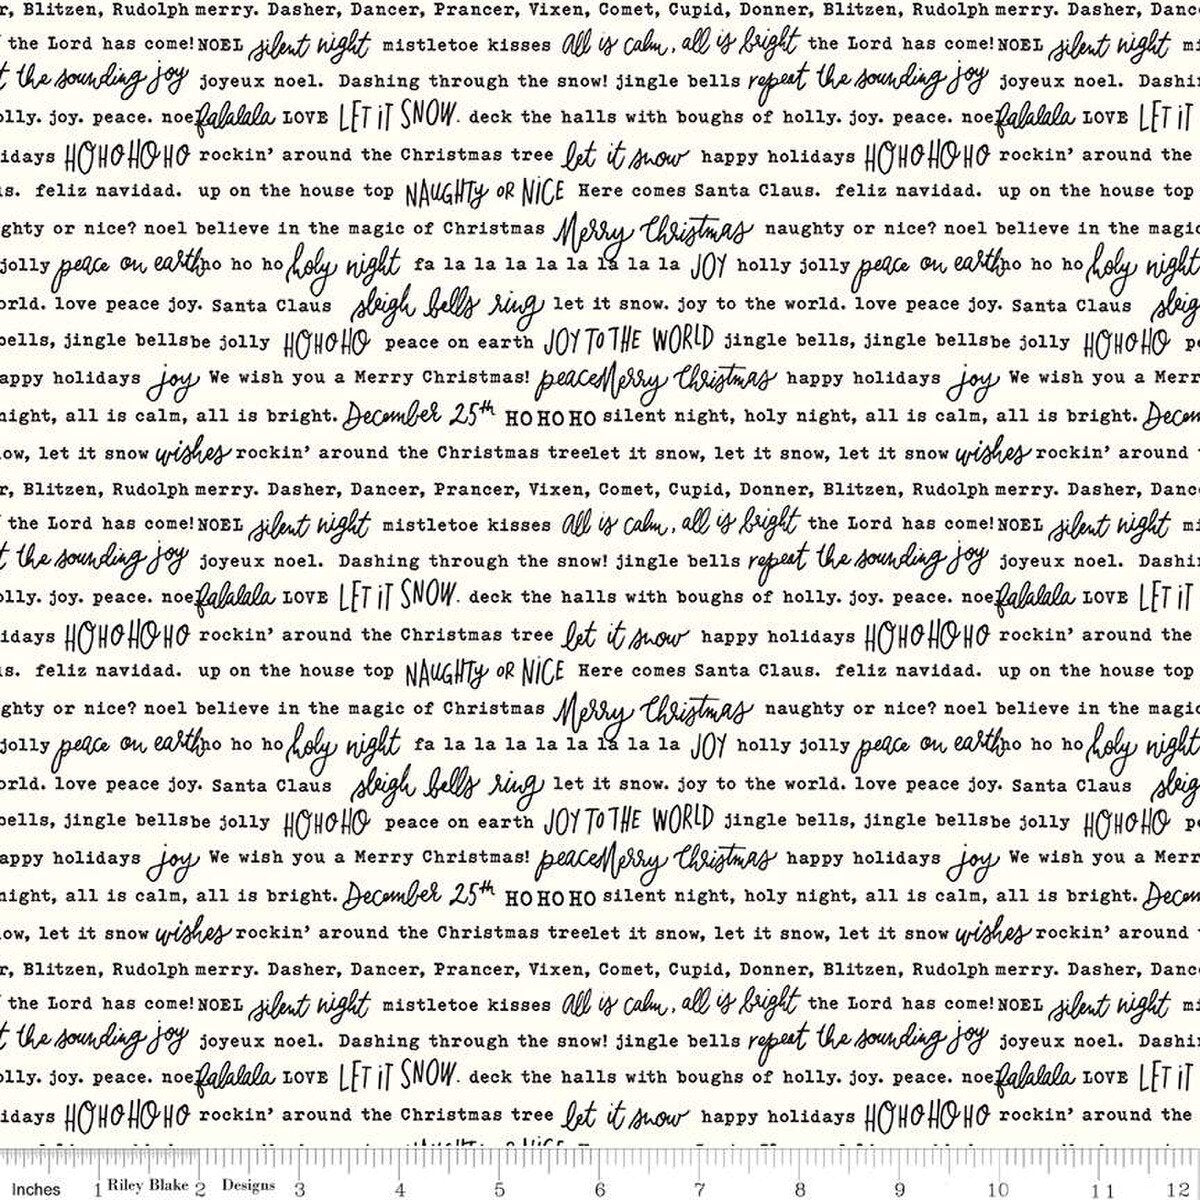 r, Blitzen, Rudolph merry. Dasher, Dancer, Prancer, Vixen, Comet, Cupid, Donner, Blitzen, Rudolph merry. Dasher, Danc
the Lord has come! NOEL silent night mistletoe kisses All is calm, all is bright the Lord has come! NOEL silent night mi
t the sounding joy joyeux noel. Dashing through the snow! jingle bells repeat the sounding joy joyeux noel. Dashi
olly. joy. peace. noe falalala LOVE LET iT SNOW. deck the halls with boughs of holly. joy. peace. noe falalala LOVE LET iT
idays HOHOHOHO rockin' around the Christmas tree let it snow happy holidays HOHOHOHO rockin' around the
s. feliz navidad. up on the house top NAUGHTY OR NICE Here comes Santa Claus. feliz navidad. up on the house top
ghty or nice? noel believe in the magic of Christmas Merry Christmas naughty or nice? noel believe in the magic
jolly peace on earth ho ho ho holy night fa la la la la la la la la JOY holly jolly peace on earth ho ho ho holy night
orld. love peace joy. Santa Claus sleigh bells ring let it snow. joy to the world. love peace joy. Santa Claus sleig
bells, jingle bells be jolly HOHOHO peace on earth JOY TO THE WORLD jingle bells, jingle bells be jolly HOHOHO pe
appy holidays joy We wish you a Merry Christmas! peace Merry Christmas happy holidays joy We wish you a Merr
night, all is calm, all is bright. December 25th HO HO HO silent night, holy night, all is calm, all is bright. Decem
ow, let it snow wishes rockin' around the Christmas tree let it snow, let it snow, let it snow wishes rockin' around
r, Blitzen, Rudolph merry. Dasher, Dancer, Prancer, Vixen, Comet, Cupid, Donner, Blitzen, Rudolph merry. Dasher, Danc
the Lord has come! NOEL silent night mistletoe kisses All is calm, all is bright the Lord has come! NOEL silent night mi
t the sounding joy joyeux noel. Dashing through the snow! jingle bells repeat the sounding joy joyeux noel. Dashi
olly. joy. peace. noe falalala LOVE LET iT SNOW. deck the halls with boughs of holly. joy. peace. noe falalala LOVE LET iT
idays HOHOHOHO rockin' around the Christmas tree let it snow happy holidays HOHOHOHO rockin' around the
s. feliz navidad. up on the house top NAUGHTY OR NICE Here comes Santa Claus. feliz navidad. up on the house top
ghty or nice? noel believe in the magic of Christmas Merry Christmas naughty or nice? noel believe in the magic
jolly peace on earth ho ho ho holy night fa la la la la la la la la JOY holly jolly peace on earth ho ho ho holy night
orld. love peace joy. Santa Claus sleigh bells ring let it snow. joy to the world. love peace joy. Santa Claus sleig
bells, jingle bells be jolly HOHOHO peace on earth JOY TO THE WORLD jingle bells, jingle bells be jolly HOHOHO pe
appy holidays joy We wish you a Merry Christmas! peace Merry Christmas happy holidays joy We wish you a Merr
night, all is calm, all is bright. December 25th HO HO HO silent night, holy night, all is calm, all is bright. Decem
ow, let it snow wishes rockin' around the Christmas tree let it snow, let it snow, let it snow wishes rockin' around
r, Blitzen, Rudolph merry. Dasher, Dancer, Prancer, Vixen, Comet, Cupid, Donner, Blitzen, Rudolph merry. Dasher, Danc
the Lord has come! NOEL silent night mistletoe kisses All is calm, all is bright the Lord has come! NOEL silent night mi
t the sounding joy joyeux noel. Dashing through the snow! jingle bells repeat the sounding joy joyeux noel. Dashi
olly. joy. peace. noe falalala LOVE LET iT SNOW. deck the halls with boughs of holly. joy. peace. noe falalala LOVE LET iT
idays HOHOHOHO rockin' around the Christmas tree let it snow happy holidays HOHOHOHO rockin' around the
Inches 1 Riley Blake 2 Designs 3 4 5 6 7 8 9 10 11 12